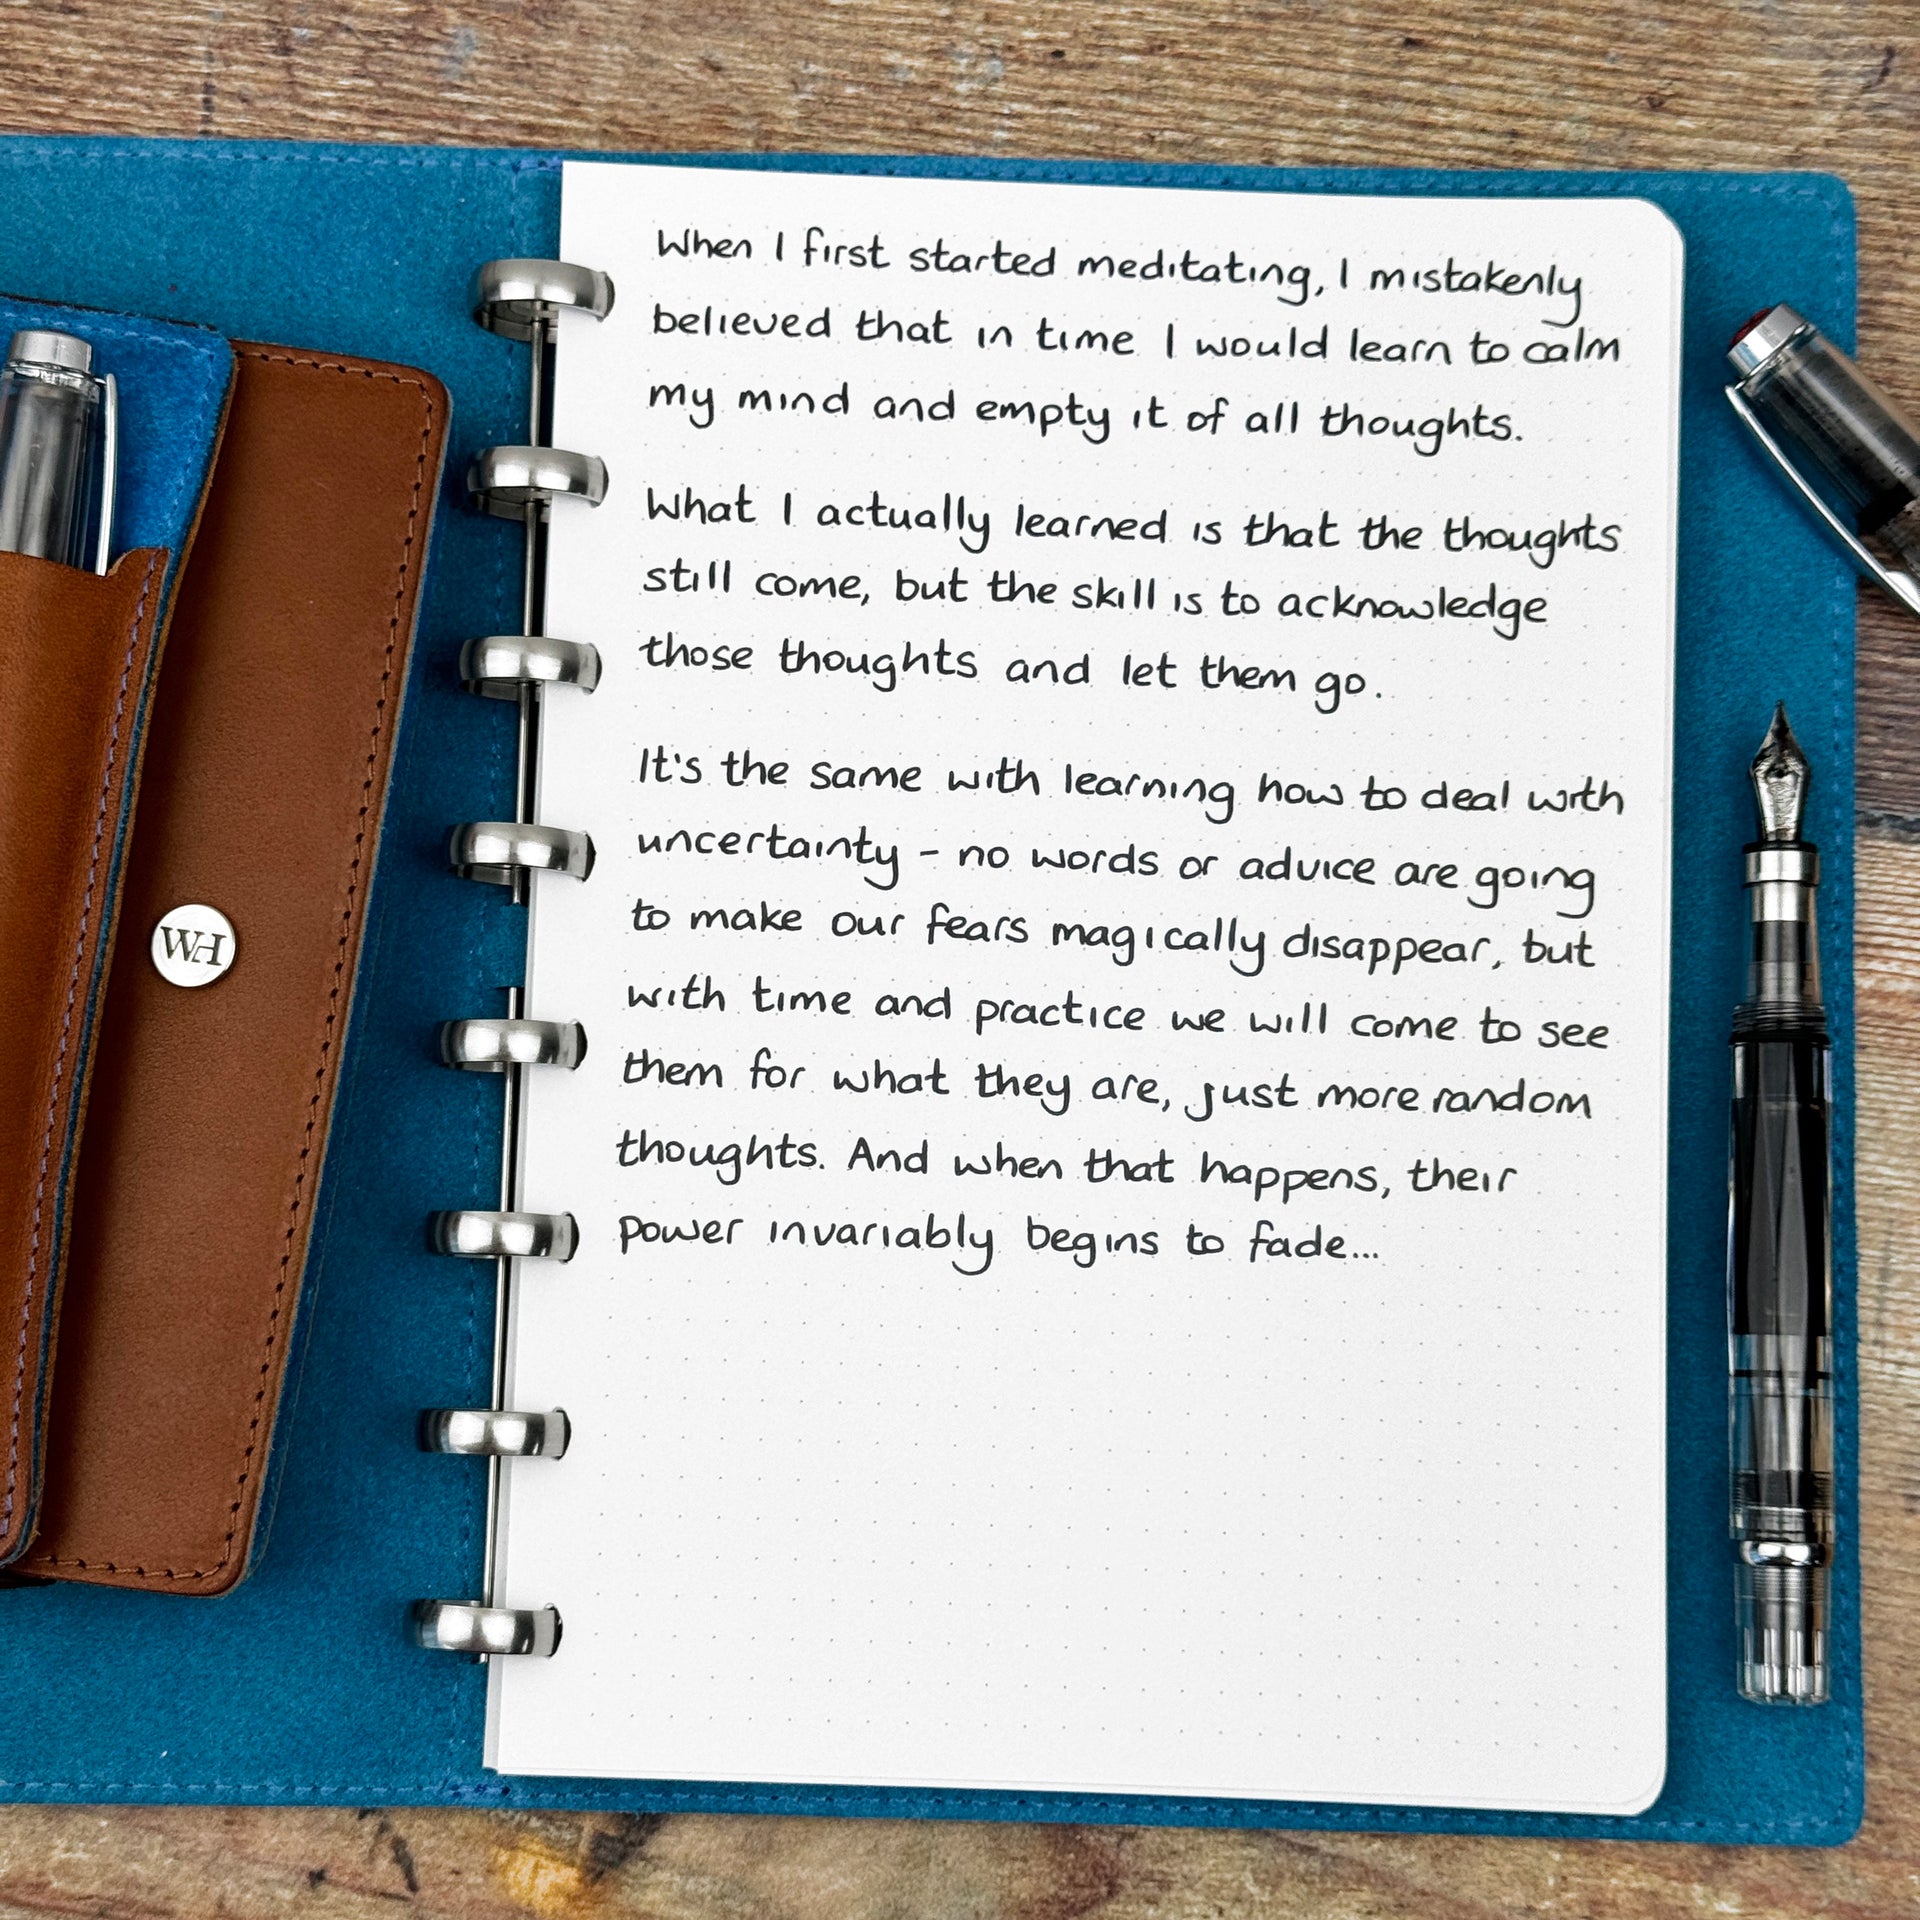 When I first started meditating, I mistakenly
believed that in time I would learn to calm
my mind and empty it of all thoughts.
What I actually learned is that the thoughts
still come, but the skill is to acknowledge
those thoughts and let them go.
It's the same with learning how to deal with
uncertainty - no words or advice are going
to make our fears magically disappear, but
with time and practice we will come to see
them for what they are, just more random
thoughts. And when that happens, their
power invariably begins to fade...
WH